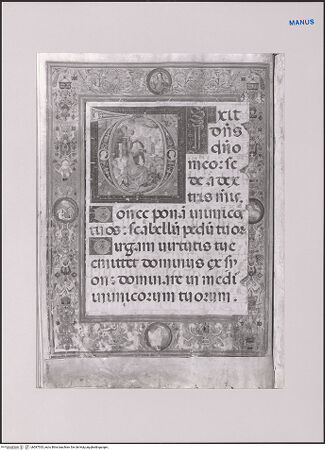 MANUS
D
ixit
dn̄s
dn̄o
meo: se
de a dex
tris meis.
Donec ponā inimico
tuos: scabellū pedū tuor
Uirgam uirtutis tue
emittet dominus ex sy
on: dominare in medi
inimicorum tuorum.